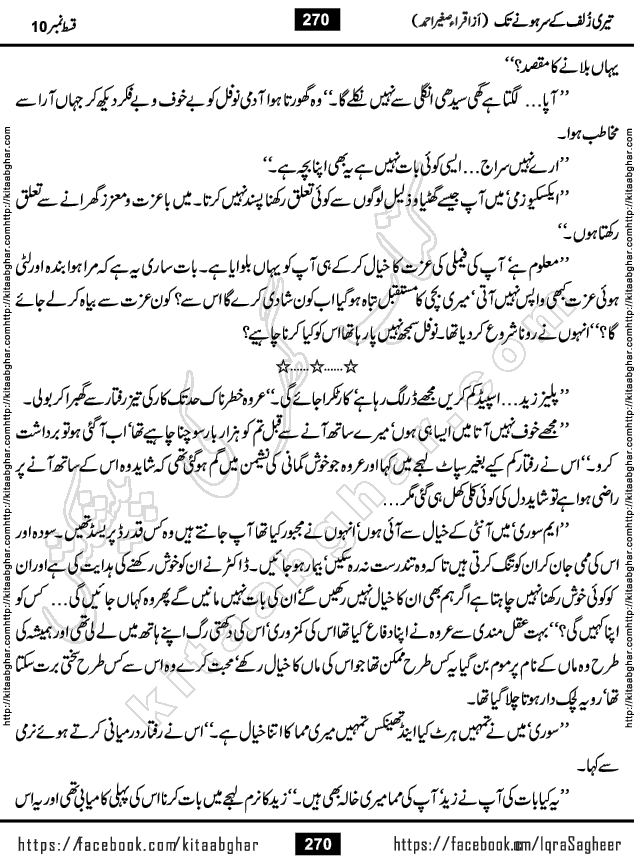 تیری زُلف کے سر ہونے تک (از اقراء صغیر احمد)
270
قسط نمبر 10
یہاں بلانے کا مقصد؟‘‘
’’آپا... لگتا ہے گھی سیدھی انگلی سے نہیں نکلے گا۔‘‘ وہ گھورتا ہوا آدمی نوفل کو بے خوف و بے فکر دیکھ کر جہاں آرا سے
مخاطب ہوا۔
’’ارے نہیں سراج... ایسی کوئی بات نہیں ہے یہ بھی اپنا بچہ ہے۔‘‘
’’ایکسکیوز می‘ میں آپ جیسے گھٹیا و ذلیل لوگوں سے کوئی تعلق رکھنا پسند نہیں کرتا۔ میں باعزت و معزز گھرانے سے تعلق
رکھتا ہوں۔‘‘
’’معلوم ہے‘ آپ کی فیملی کی عزت کا خیال کر کے ہی آپ کو یہاں بلوایا ہے۔ بات ساری یہ ہے کہ مرا ہوا بندہ اور لٹی
ہوئی عزت کبھی واپس نہیں آتی‘ میری بچی کا مستقبل تباہ ہوگیا اب کون شادی کرے گا اس سے؟ کون عزت سے بیاہ کر لے جائے
گا؟‘‘ انہوں نے رونا شروع کردیا تھا۔ نوفل سمجھ نہیں پا رہا تھا اس کو کیا کرنا چاہیے؟
☆......☆......☆
’’پلیز زید... اسپیڈ کم کریں مجھے ڈر لگ رہا ہے‘ کار ٹکرا جائے گی۔‘‘ عروہ خطرناک حد تک کار کی تیز رفتار سے گھبرا کر بولی۔
’’مجھے خوف نہیں آتا میں ایسا ہی ہوں‘ میرے ساتھ آنے سے قبل تم کو ہزار بار سوچنا چاہیے تھا‘ اب آ گئی ہو تو برداشت
کرو۔‘‘ اس نے رفتار کم کیے بغیر سپاٹ لہجے میں کہا اور عروہ جو خوش گمانی کی نشیمن میں گم ہوگئی تھی کہ شاید وہ اس کے ساتھ آنے پر
راضی ہوا ہے تو شاید دل کی کوئی کلی کھل ہی گئی مگر...
’’ایم سوری‘ میں آنٹی کے خیال سے آئی ہوں‘ انہوں نے مجبور کیا تھا آپ جانتے ہیں وہ کس قدر ڈپریسڈ تھیں۔ سودہ اور
اس کی ممی جان کر ان کو تنگ کرتی ہیں تاکہ وہ تندرست نہ رہ سکیں‘ بیمار ہو جائیں۔ ڈاکٹر نے ان کو خوش رکھنے کی ہدایت کی ہے اور ان
کو کوئی خوش رکھنا نہیں چاہتا ہے اگر ہم بھی ان کا خیال نہیں رکھیں گے‘ ان کی بات نہیں مانیں گے پھر وہ کہاں جائیں گی... کس کو
اپنا کہیں گی؟‘‘ بہت عقل مندی سے عروہ نے اپنا دفاع کیا تھا اس کی کمزوری‘ اس کی دکھتی رگ اپنے ہاتھ میں لے لی تھی اور ہمیشہ کی
طرح وہ ماں کے نام پر موم بن گیا یہ کس طرح ممکن تھا جو اس کی ماں کا خیال رکھے‘ محبت کرے وہ اس سے کس طرح سختی برت سکتا
تھا‘ رویہ لچک دار ہوتا چلا گیا تھا۔
’’سوری‘ میں نے تمہیں ہرٹ کیا اینڈ تھینکس تمہیں میری مما کا اتنا خیال ہے۔‘‘ اس نے رفتار درمیانی کرتے ہوئے نرمی
سے کہا۔
’’یہ کیا بات کی آپ نے زید‘ آپ کی مما میری خالہ بھی ہیں۔‘‘ زید کا نرم لہجے میں بات کرنا اس کی پہلی کامیابی تھی اور یہ اس
https://facebook.com/kitaabghar
270
https://facebook.com/IqraSagheer
http://kitaabghar.com
http://kitaabghar.com
کتاب گھر کی پیشکش
kitaabghar.com